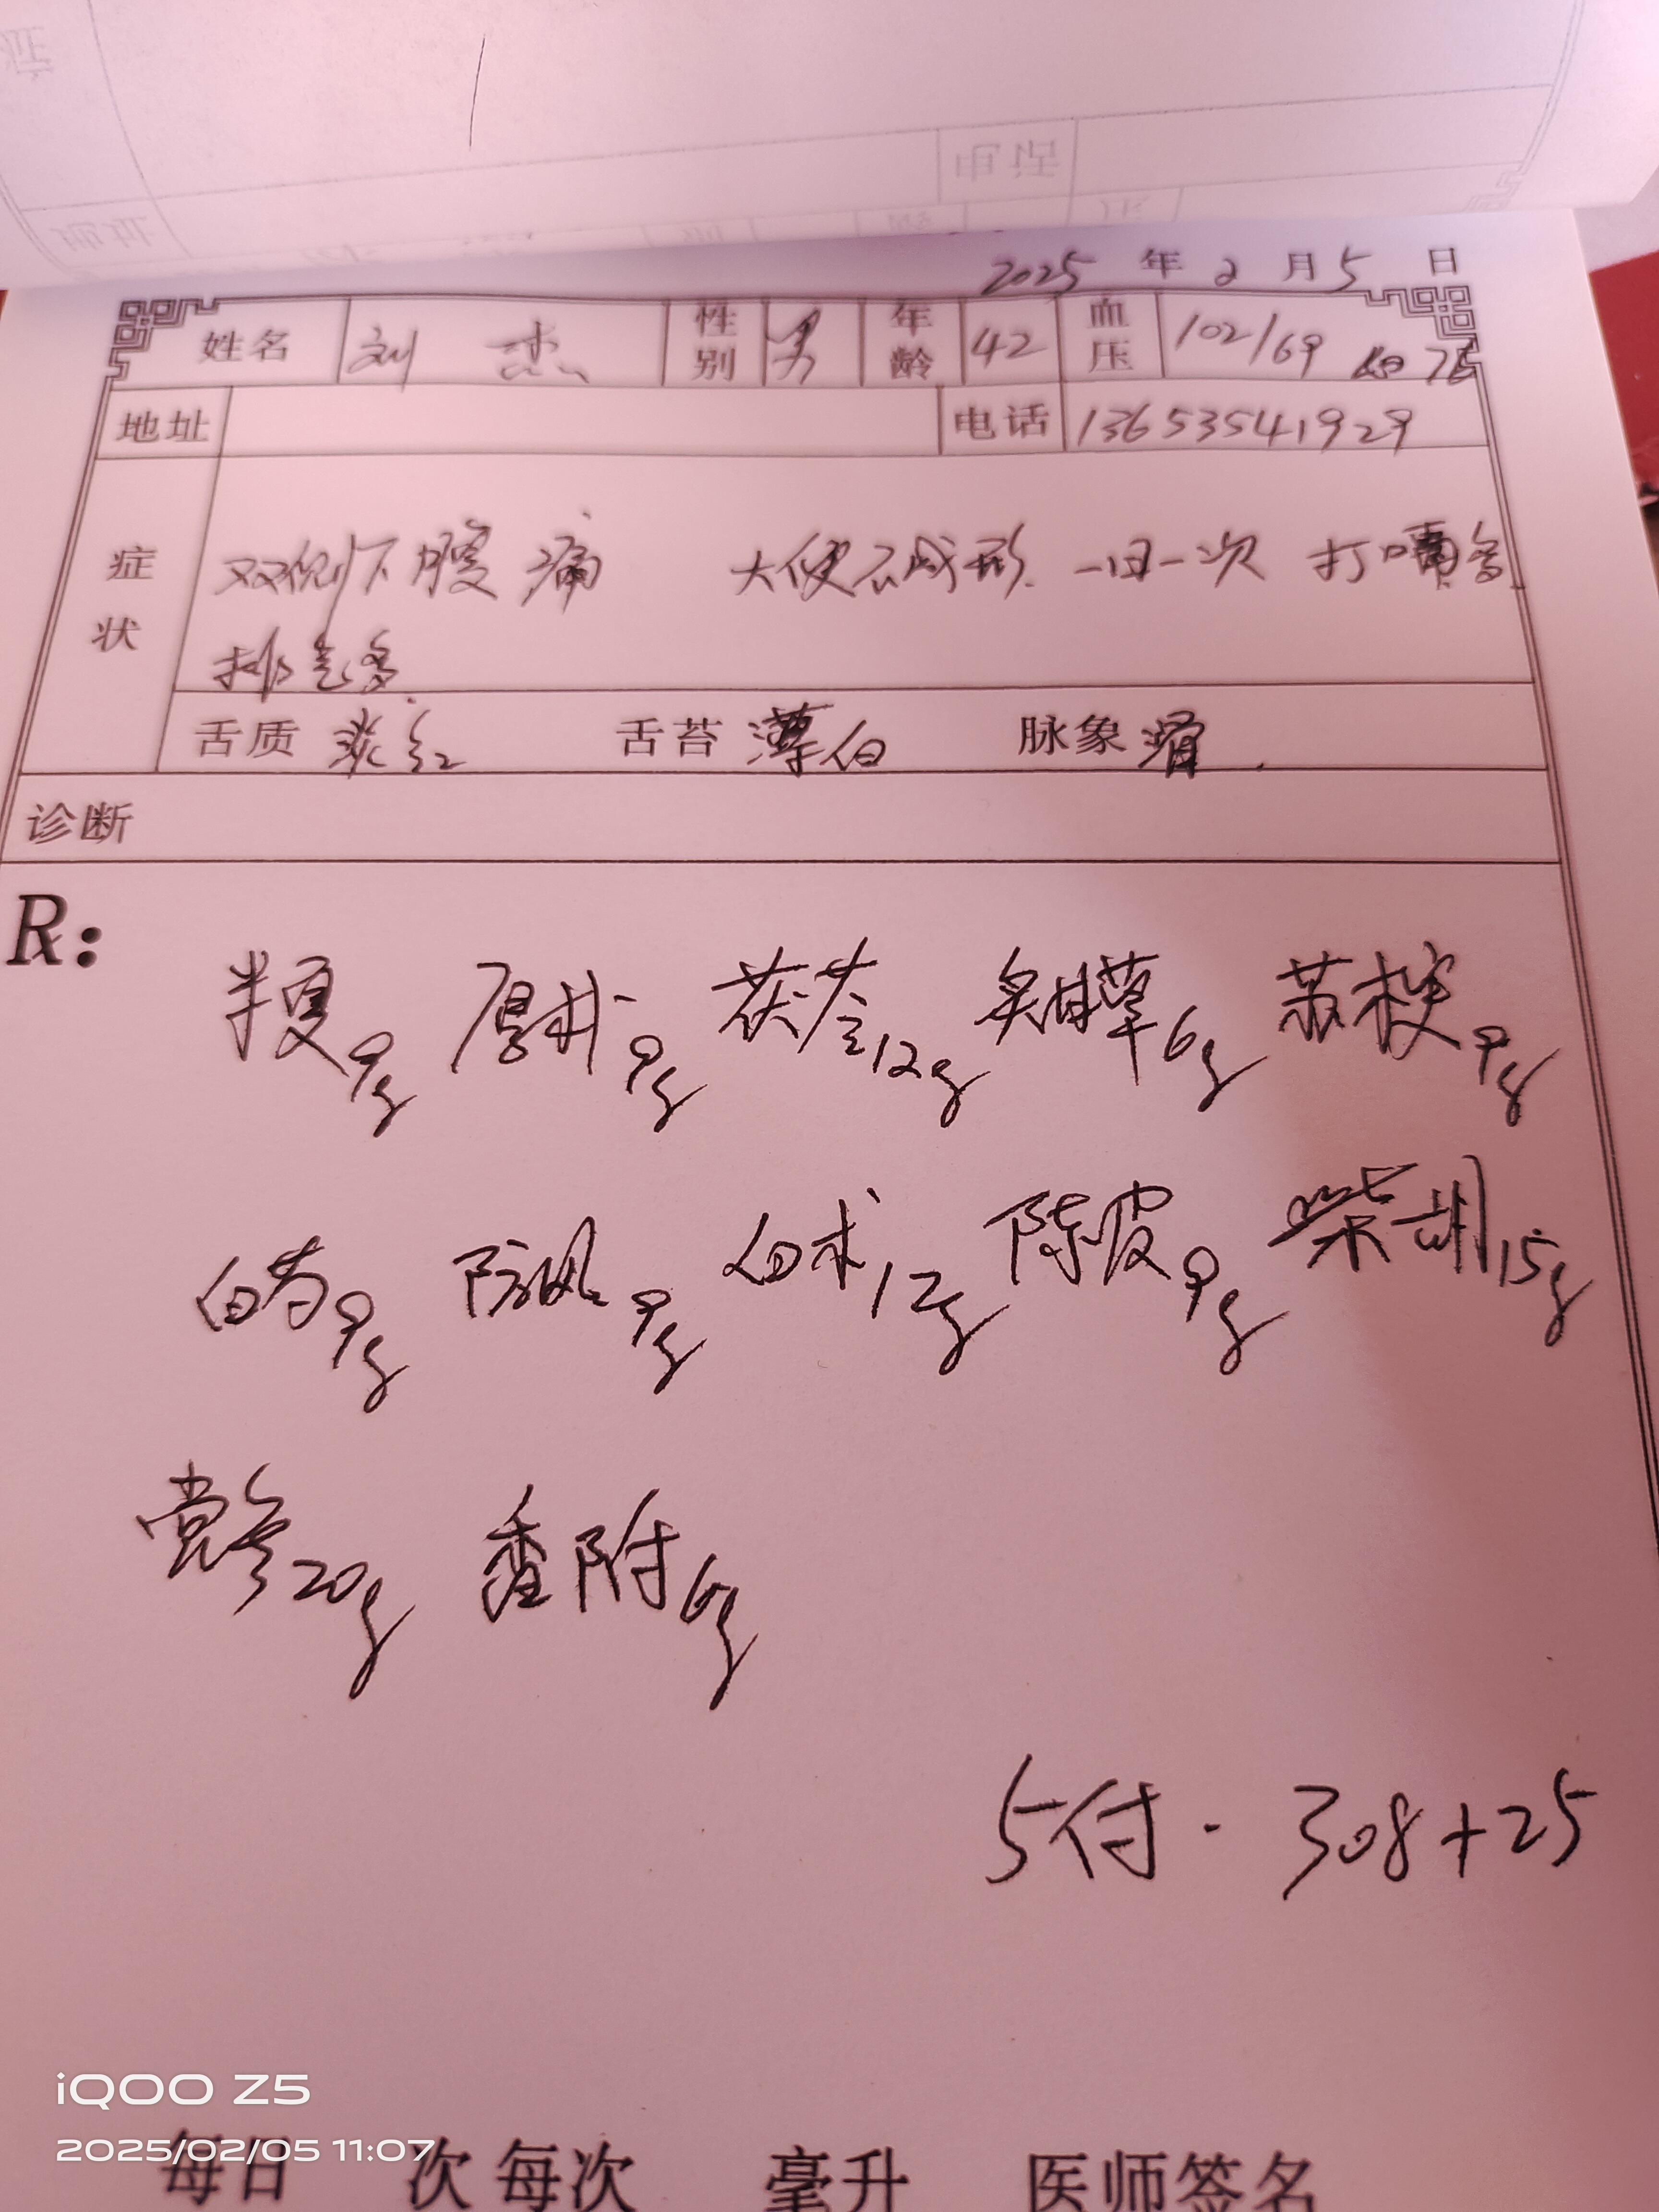 2025 年 2 月 5 日
姓名 刘杰 性别 男 年龄 42 血压 102/69 76
地址 电话 13653541929
症状 双侧下腹痛 大便不成形 一日一次 打嗝多
排气多
舌质 淡红 舌苔 薄白 脉象 滑
诊断
R:
半夏9g 厚朴9g 茯苓12g 炙甘草6g 苏梗9g
白芍9g 防风9g 白术12g 陈皮9g 柴胡15g
党参20g 香附6g
5付. 308+25
iQOO Z5
2025/02/05 11:07
每日 次 每次 毫升 医师签名